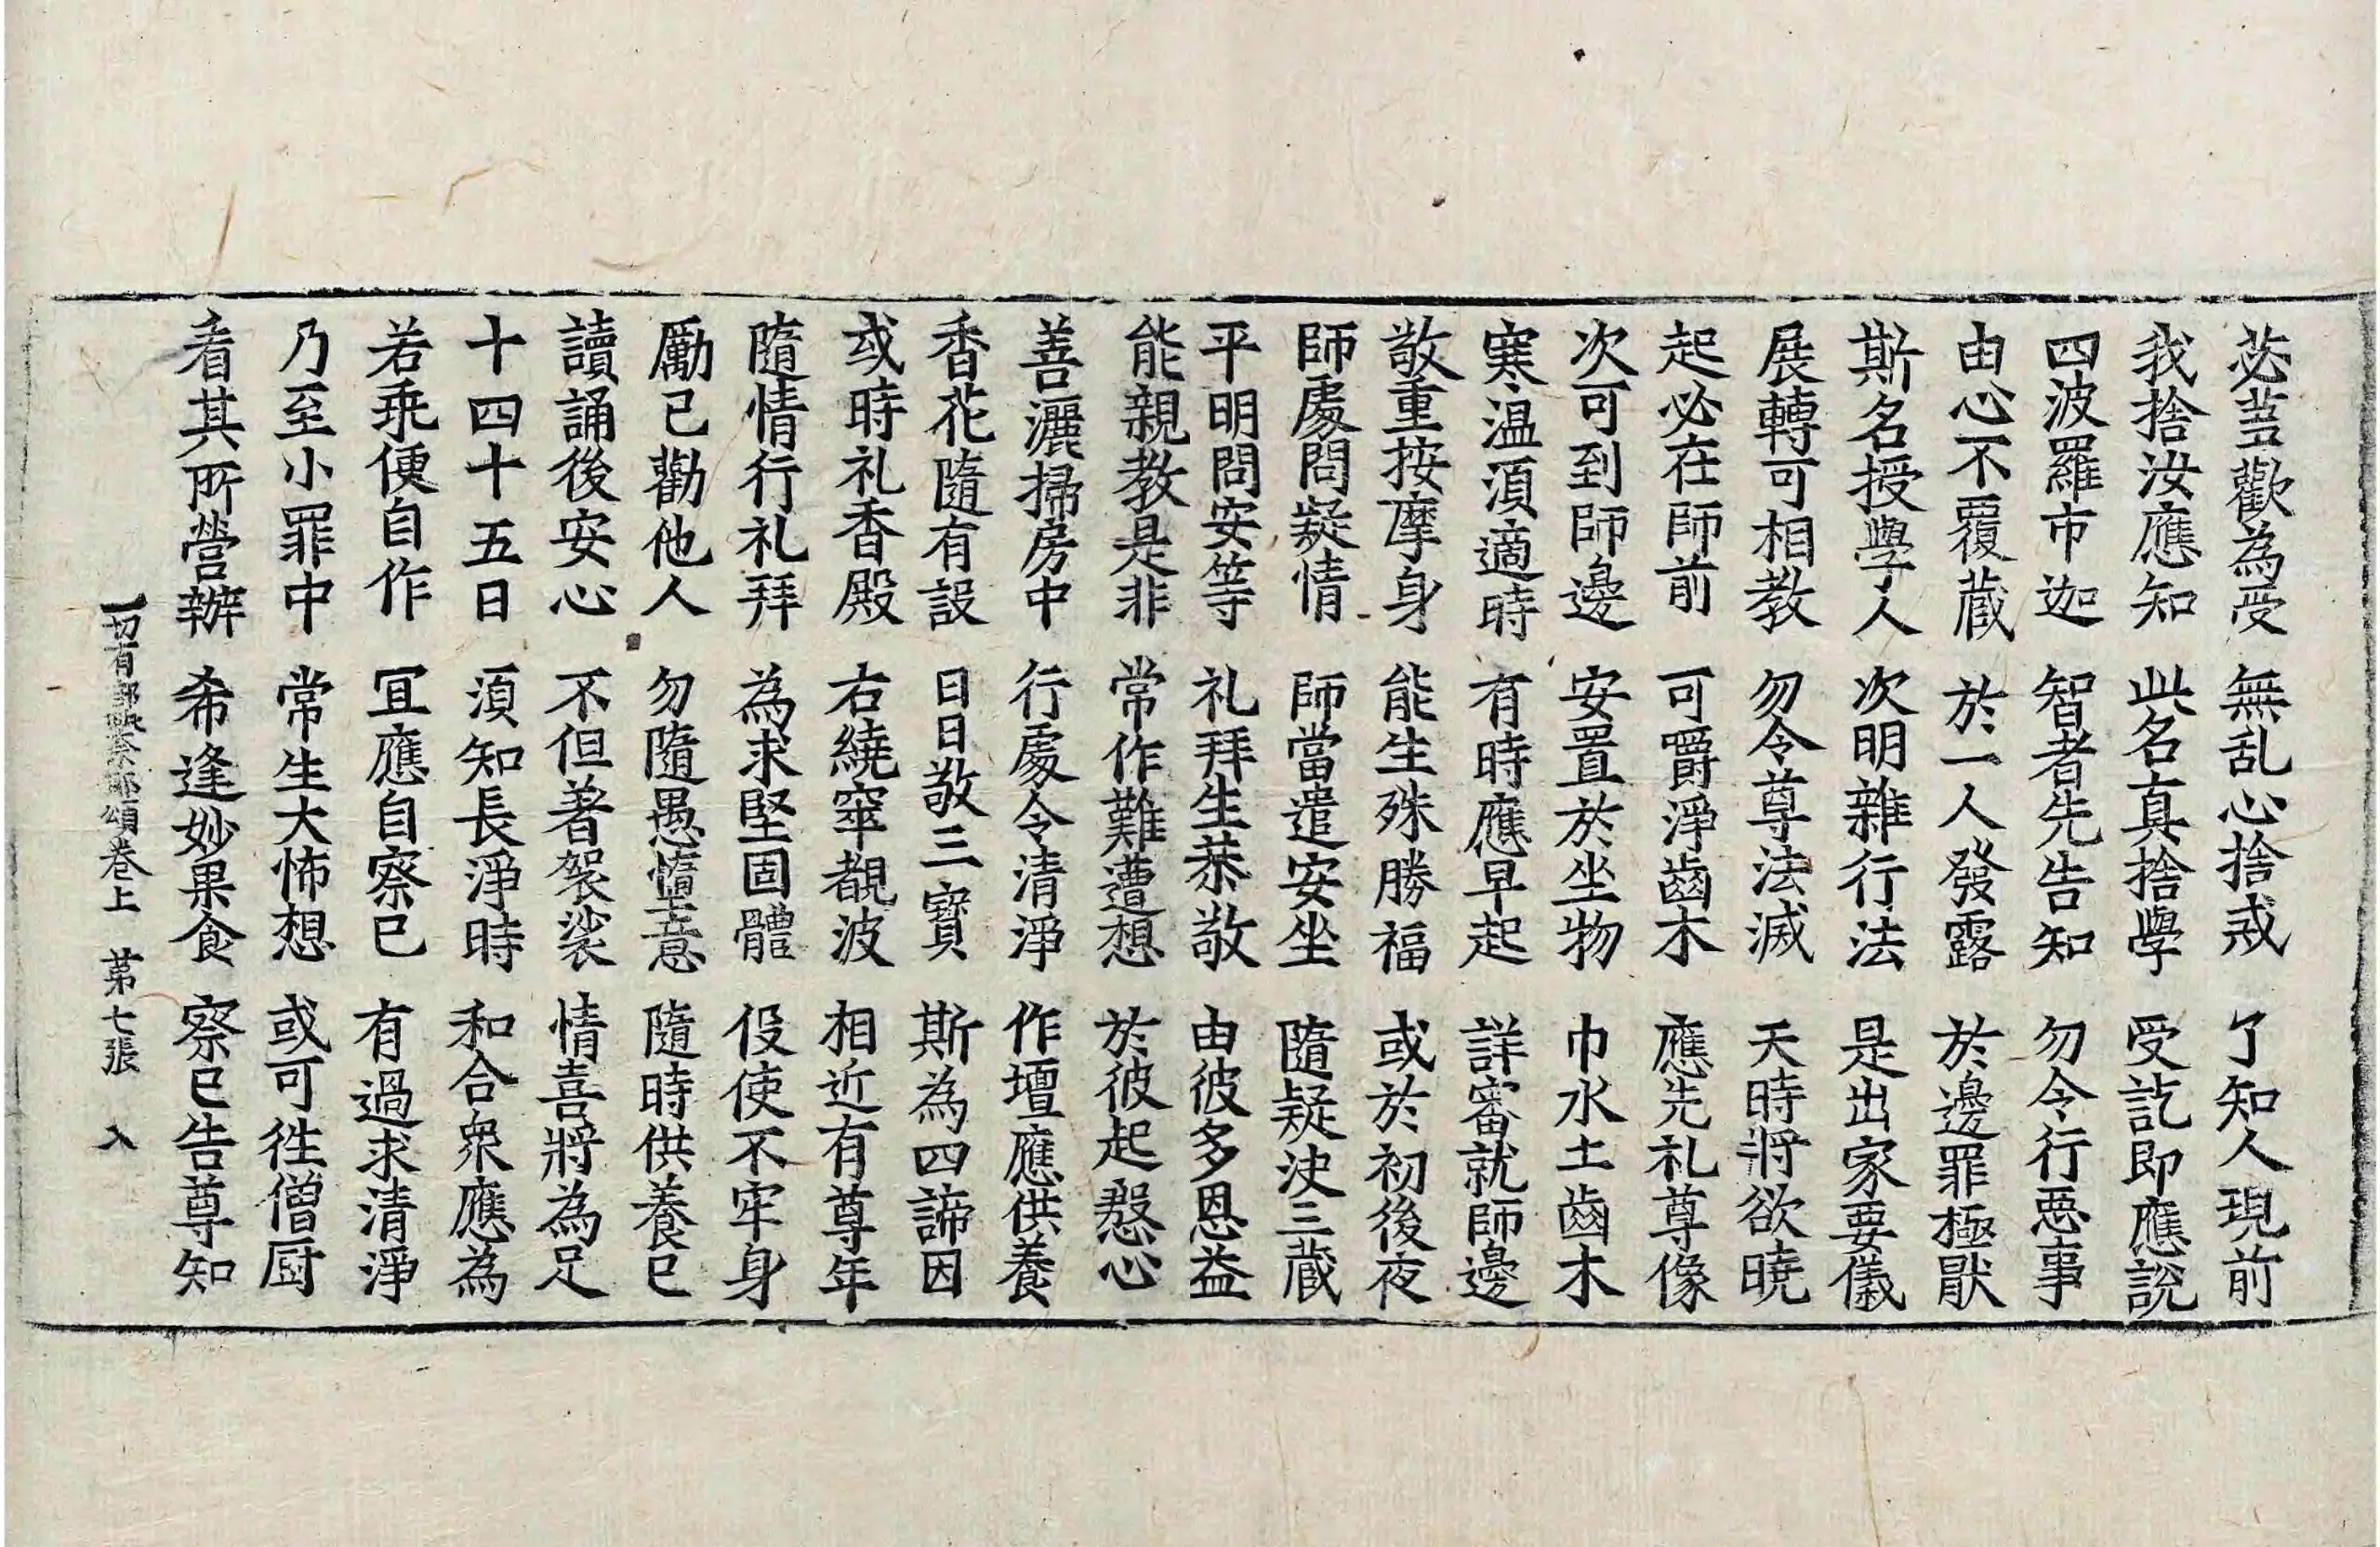 苾蒭歡為受 無乱心捨戒 了知人現前
我捨汝應知 此名真捨學 受訖即應說
四波羅市迦 智者先告知 勿令行惡事
由心不覆蔵 於一人發露 於邊罪極猒
斯名授學人 次明雜行法 是出家要儀
展轉可相教 勿令尊法滅 天時將欲曉
起必在師前 可嚼淨齒木 應先礼尊像
次可到師邊 安置於坐物 巾水土齒木
寒温湏適時 有時應早起 詳審就師邊
敬重按摩身 能生殊勝福 或於初後夜
師處問疑情 師當遣安坐 隨疑決三蔵
平明問安等 礼拜生恭敬 由彼多恩益
能親教是非 常作難遭想 於彼起慇心
善灑掃房中 行處令清淨 作壇應供養
香花隨有設 日日敬三寳 斯為四諦因
或時礼香殿 右繞窣覩波 相近有尊年
隨情行礼拜 為求堅固體 伇使不牢身
勵己勸他人 勿隨愚惰意 隨時供養已
讀誦後安心 不但著袈裟 情喜將為足
十四十五日 湏知長淨時 和合衆應為
若乖便自作 冝應自察已 有過求清淨
乃至小罪中 常生大怖想 或可徃僧厨
看其所營辦 希逢妙果食 察已告尊知
一切有部毗奈耶頌卷上 第七張 入